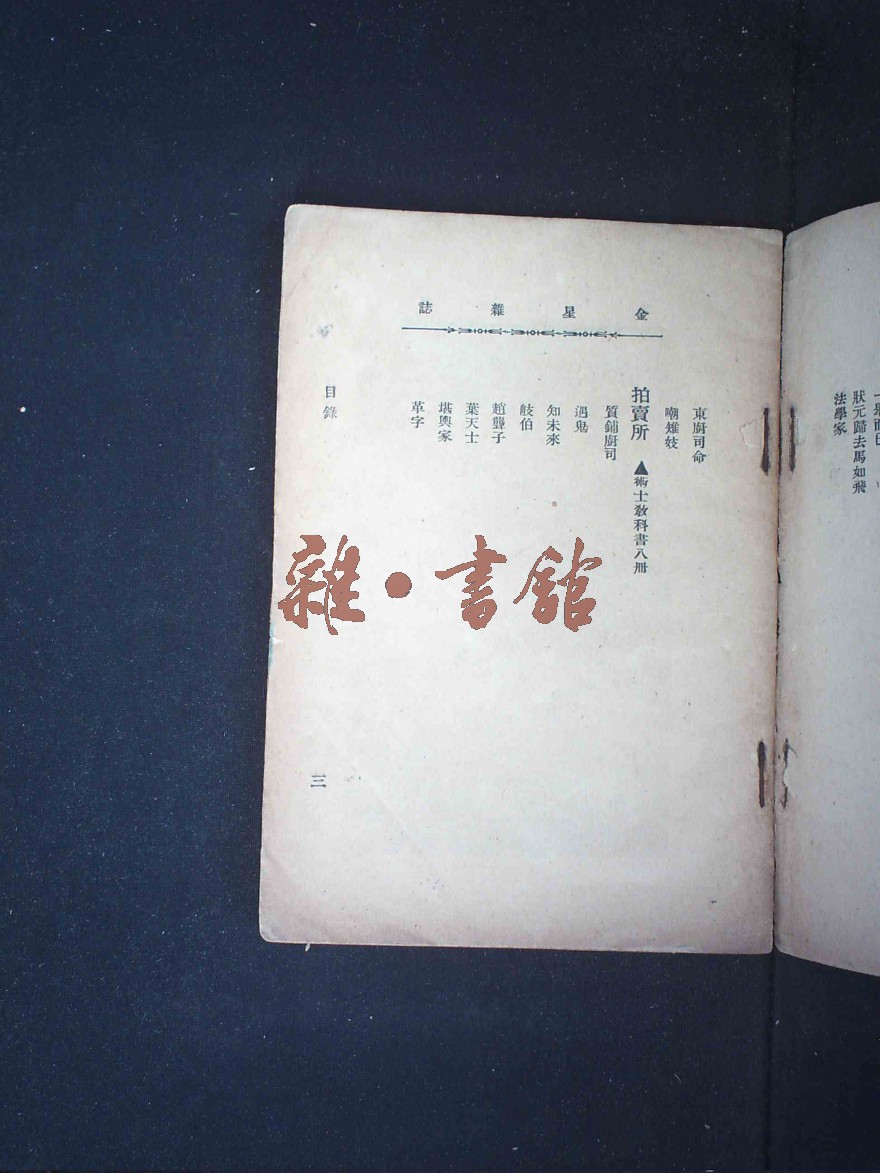 狀元歸去馬如飛
法學家
金星雜誌
東廚司命
嘲雉妓
拍賣所 ▲術士敎科書八册
質鋪廚司
遇鬼
知未來
岐伯
趙聾子
葉天士
堪輿家
革字
目錄
三
雜·書館